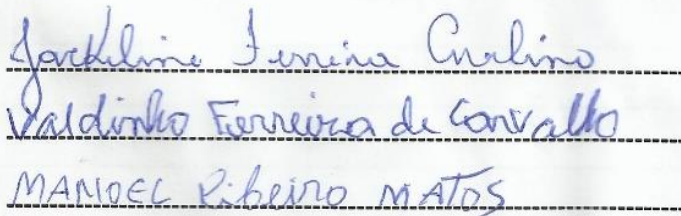 Jackeline Ferreira
Valdinho Ferreira de Carvalho
MANOEL Ribeiro MATOS